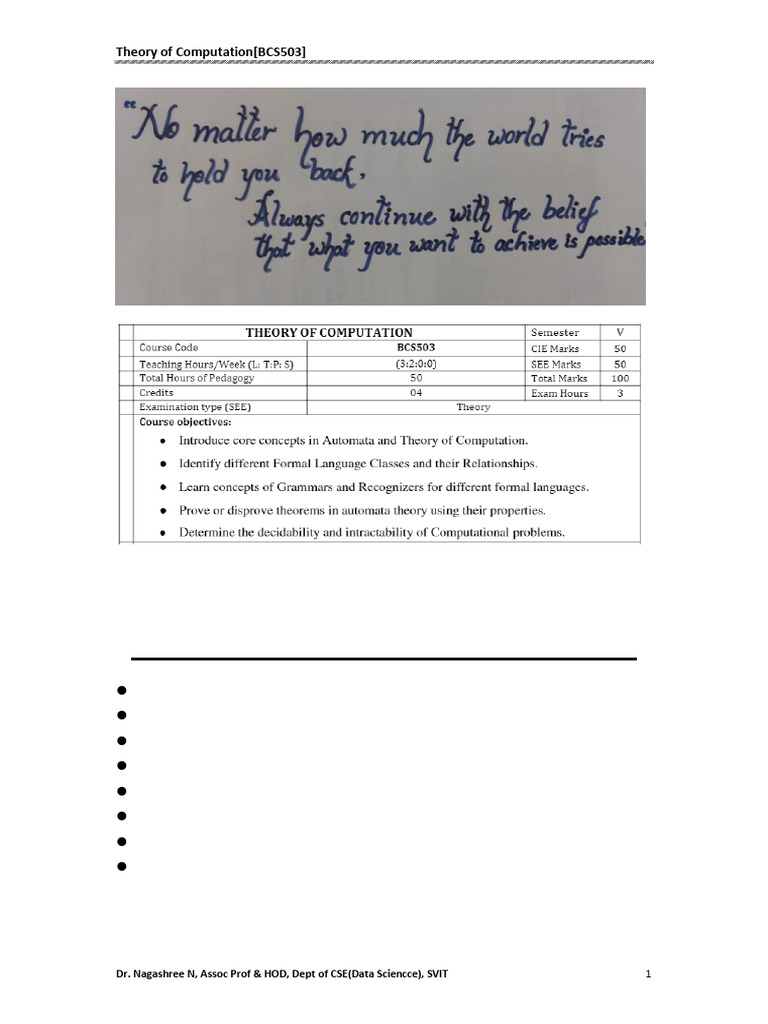 Theory of Computation[BCS503]
“No matter how much the world tries
to hold you back,
Always continue with the belief
that what you want to achieve is possible"
THEORY OF COMPUTATION Semester V
Course Code BCS503 CIE Marks 50
Teaching Hours/Week (L: T:P: S) (3:2:0:0) SEE Marks 50
Total Hours of Pedagogy 50 Total Marks 100
Credits 04 Exam Hours 3
Examination type (SEE) Theory
Course objectives:
● Introduce core concepts in Automata and Theory of Computation.
● Identify different Formal Language Classes and their Relationships.
● Learn concepts of Grammars and Recognizers for different formal languages.
● Prove or disprove theorems in automata theory using their properties.
● Determine the decidability and intractability of Computational problems.
Dr. Nagashree N, Assoc Prof & HOD, Dept of CSE(Data Sciencce), SVIT 1